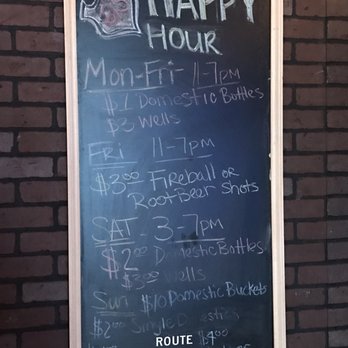 HAPPY
HOUR
Mon-Fri- 11-7pm
$2 Domestic Bottles
$3 Wells
FRI 11-7pm
$3.00 Fireball or
RootBeer Shots
SAT - 3-7pm
$2.00 Domestic Bottles
$3.00 Wells
Sun $10 Domestic Buckets
$2.00 Single Domestics
ROUTE $4.00